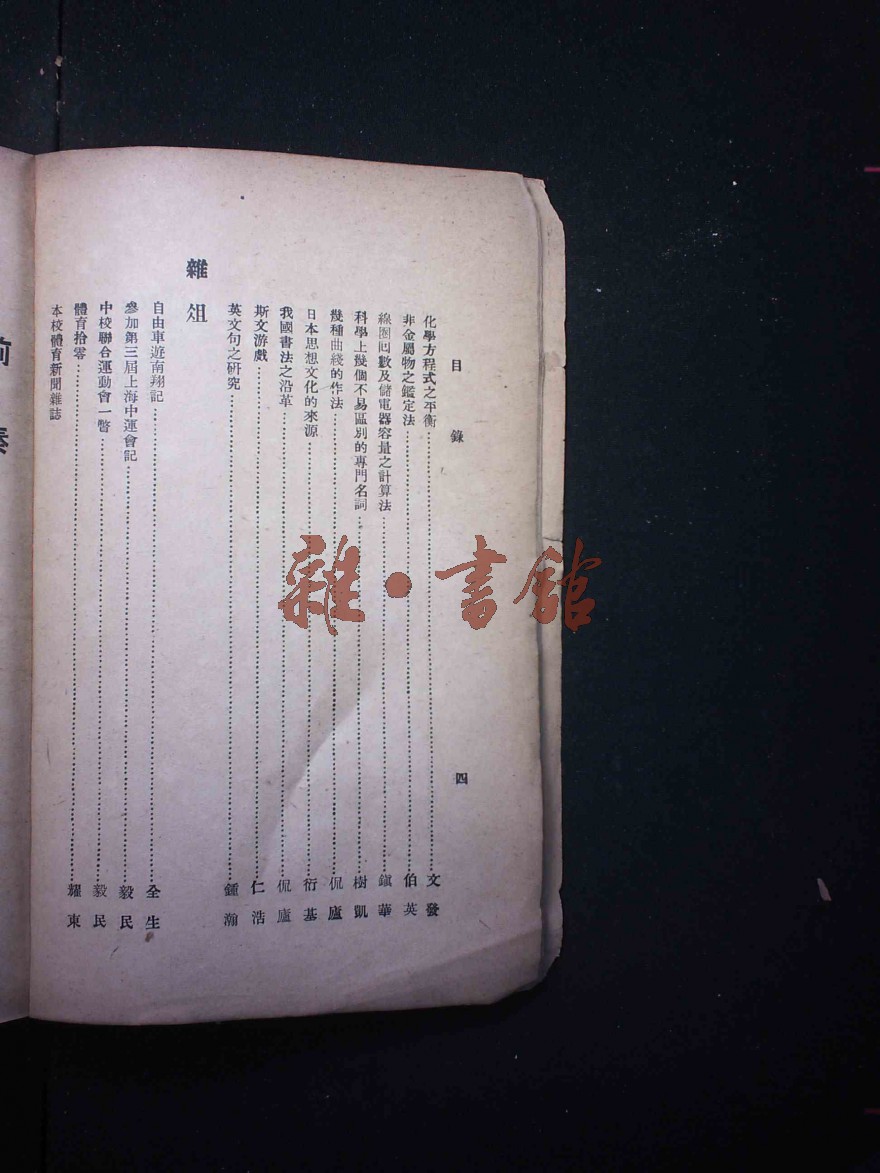 目錄　四
化學方程式之平衡……文發
非金屬物之鑑定法……伯英
線圈囘數及儲電器容量之計算法……鎭華
科學上幾個不易區別的專門名詞……樹凱
幾種曲綫的作法……侃廬
日本思想文化的來源……衍基
我國書法之沿革……侃廬
斯文游戲……仁浩
英文句之硏究……鍾瀚
雜俎
自由車遊南翔記……全生
參加第三屆上海中運會記……毅民
中校聯合運動會一瞥……毅民
體育拾零……耀東
本校體育新聞雜誌
前奏
雜·書館